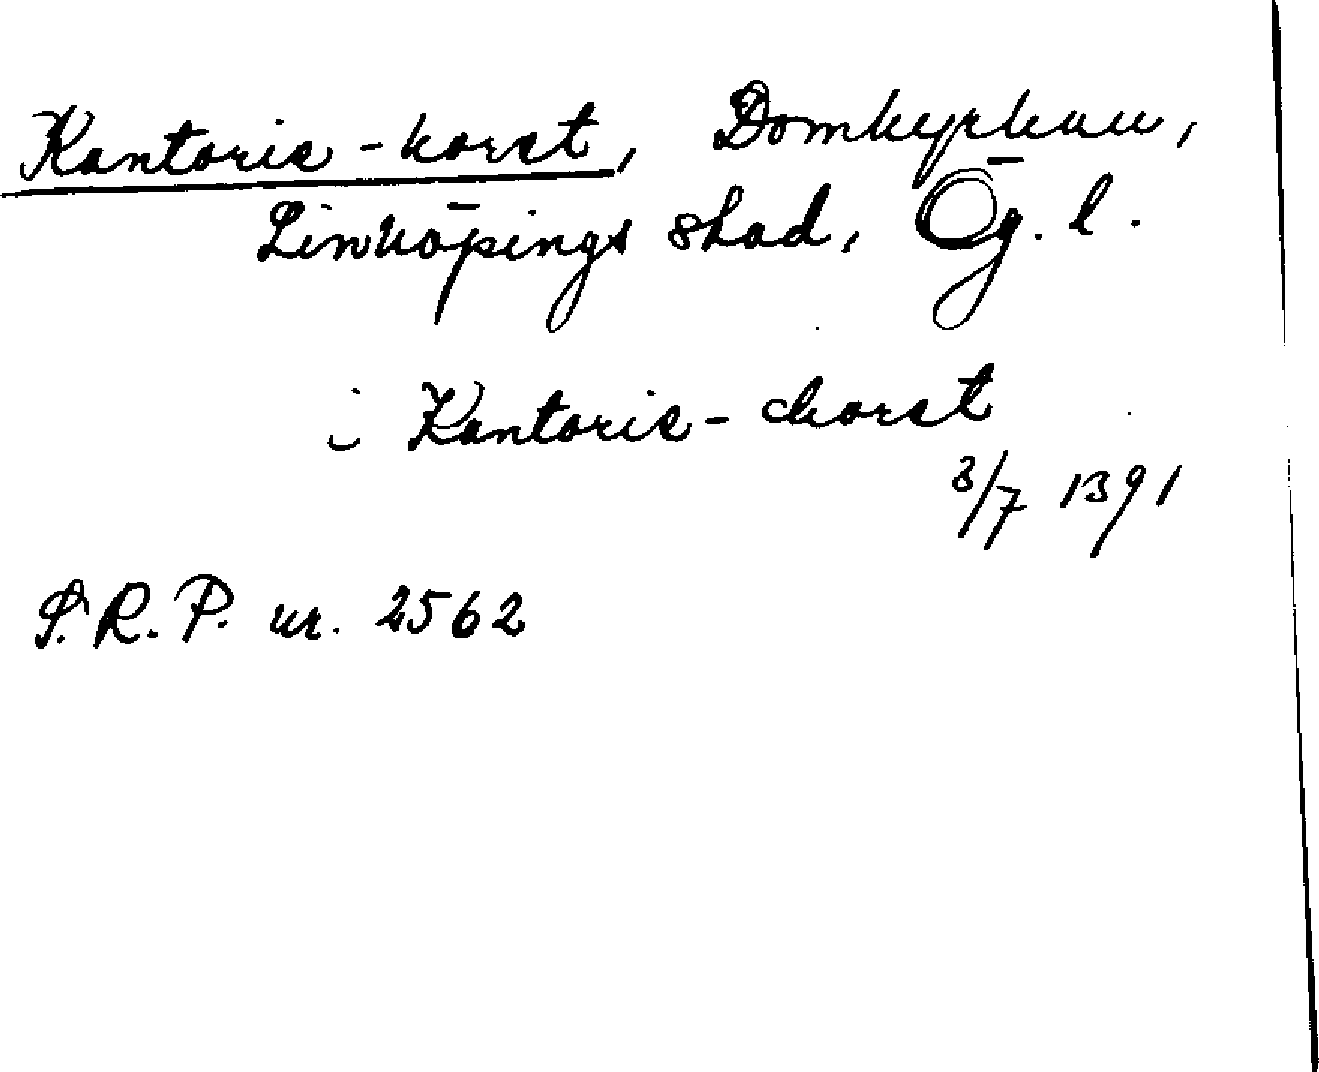 Kantoris-koret, Domkyrkan,
Linköpings stad, Ög. l.
i Kantoris-choret
3/7 1391
S.R.P. nr. 2562